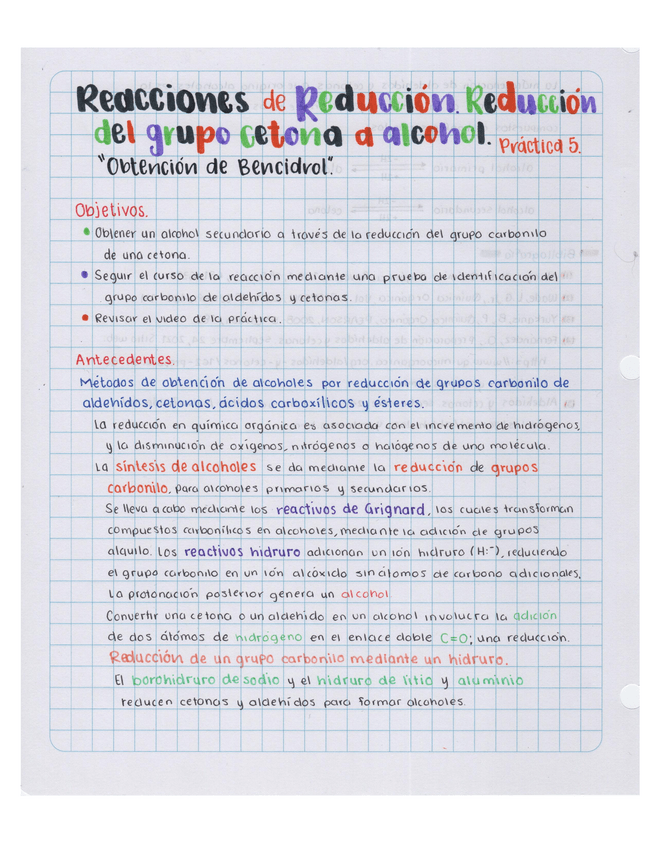 Reacciones de Reducción. Reducción
del grupo cetona a alcohol. Práctica 5.
"Obtención de Bencidrol".
Objetivos.
• Obtener un alcohol secundario a través de la reducción del grupo carbonilo
de una cetona.
• Seguir el curso de la reacción mediante una prueba de identificación del
grupo carbonilo de aldehídos y cetonas.
• Revisar el video de la práctica.
Antecedentes.
Métodos de obtención de alcoholes por reducción de grupos carbonilo de
aldehídos, cetonas, ácidos carboxílicos y ésteres.
La reducción en química orgánica es asociada con el incremento de hidrógenos,
y la disminución de oxígenos, nitrógenos o halógenos de una molécula.
La síntesis de alcoholes se da mediante la reducción de grupos
carbonilo, para alcoholes primarios y secundarios.
Se lleva a cabo mediante los reactivos de Grignard, los cuales transforman
compuestos carbonílicos en alcoholes, mediante la adición de grupos
alquilo. Los reactivos hidruro adicionan un ión hidruro (H:⁻), reduciendo
el grupo carbonilo en un ión alcóxido sin átomos de carbono adicionales.
La protonación posterior genera un alcohol
Convertir una cetona o un aldehído en un alcohol involucra la adición
de dos átómos de hidrógeno en el enlace doble C=O; una reducción.
Reducción de un grupo carbonilo mediante un hidruro.
El borohidruro de sodio y el hidruro de litio y aluminio
reducen cetonas y aldehídos para formar alcoholes.